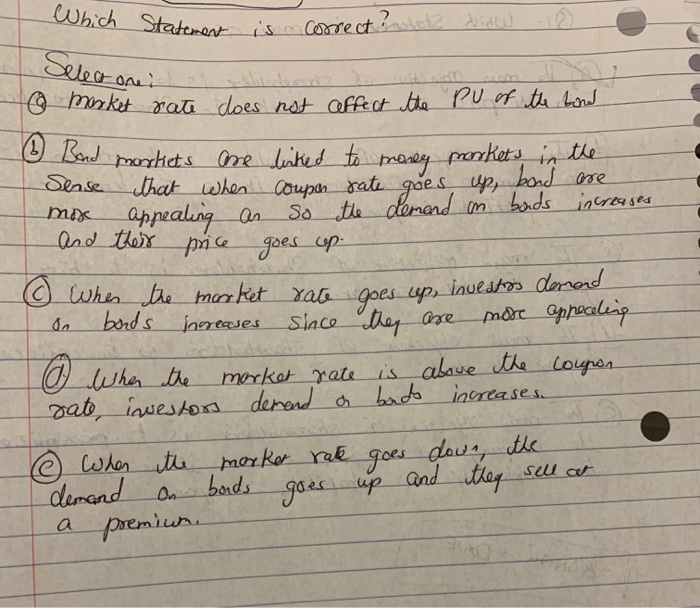 Which Statement is correct?
Select one:
(a) market rate does not affect the PV of the bond
(b) Bond markets are linked to money markets in the
Sense that when coupon rate goes up, bond are
more appealing an so the demand on bonds increases
and their price goes up.
(c) When the market rate goes up, investors demand
on bonds increases since they are more appealing
(d) When the market rate is above the coupon
rate, investors demand on bonds increases.
(e) When the market rate goes down, the
demand on bonds goes up and they sell at
a premium.